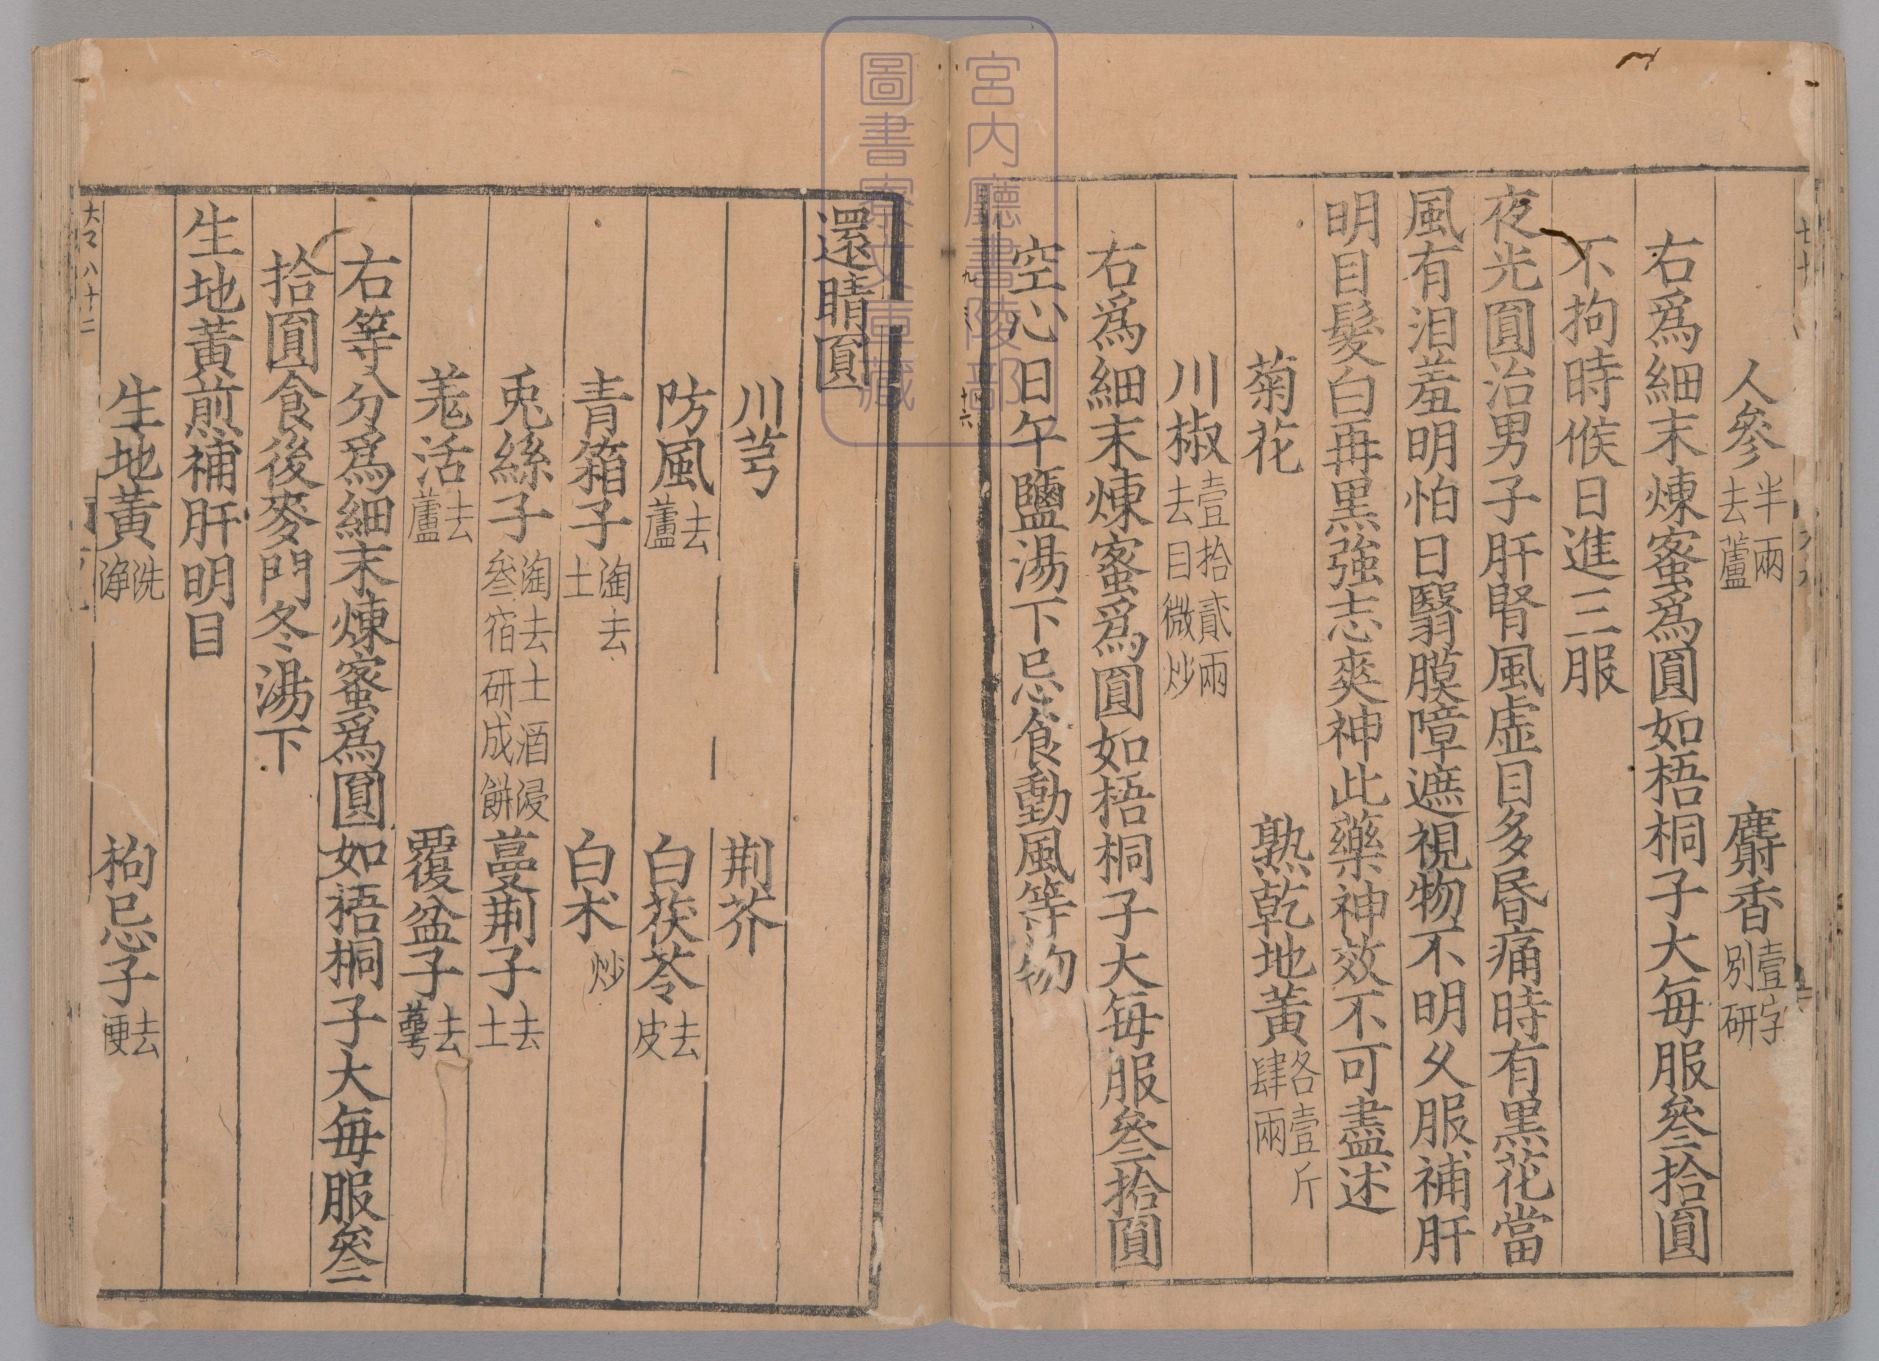 人參半兩去蘆　麝香壹字別研
右爲細末煉蜜爲圓如梧桐子大每服叄拾圓
不拘時候日進三服
夜光圓治男子肝腎風虛目多昏痛時有黑花當
風有泪羞明怕日翳膜障遮視物不明久服補肝
明目髮白再黑強志爽神此藥神效不可盡述
菊花　熟乾地黃各壹斤肆兩
川椒壹拾貳兩去目微炒
右爲細末煉蜜爲圓如梧桐子大每服叄拾圓
空心日午鹽湯下忌食動風等物
還睛圓
川芎　荆芥
防風去蘆　白茯苓去皮
青箱子淘去土　白术炒
兎絲子淘去土酒浸叄宿研成餅　蔓荆子去土
羗活去蘆　覆盆子去萼
右等分爲細末煉蜜爲圓如梧桐子大每服叄
拾圓食後麥門冬湯下
生地黃煎補肝明目
生地黃洗淨　枸忌子去梗
宮内廳書陵部
圖書寮文庫藏